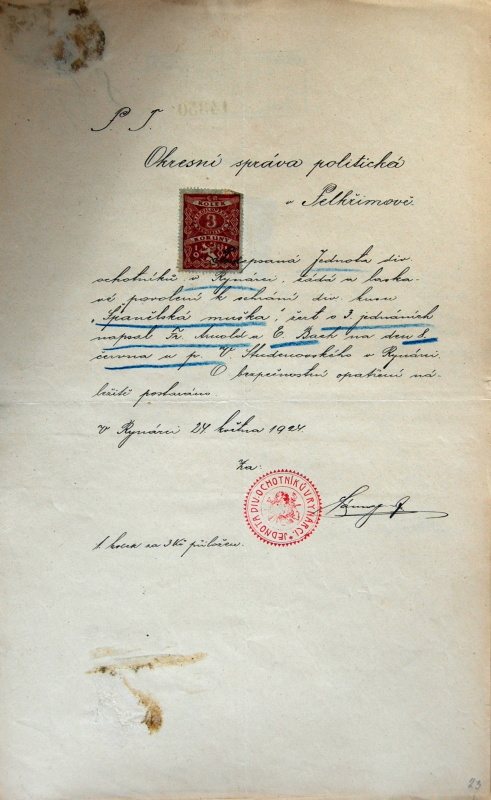 P. T.
Okresní správa politická
v Pelhřimově.
KOLEK
3
KORUNY
Jednota div.
ochotníků v Rynárci, žádá o laska-
vé povolení k sehrání div. kusu
„Španělská muška", žert o 3. jednáních
napsal Fr. Arnold a E. Bach na den 8.
června u p. V. Studenovského v Rynárci.
O bezpečnostní opatření ná-
ležitě postaráno.
V Rynárci 24 května 1924.
Za:
JEDNOTA DIV. OCHOTNÍKŮ V RYNÁRCI.
1 kolek za 3 Kč přiložen.
23